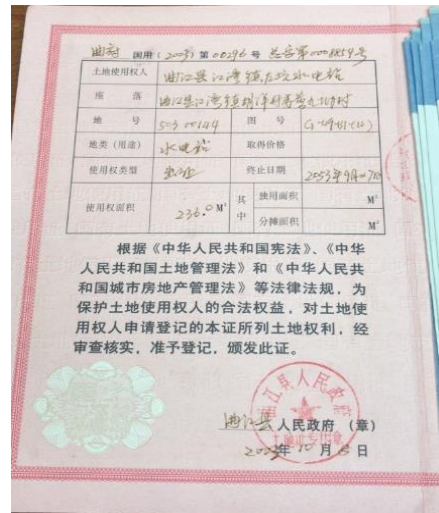 曲府 国用(2003)第00296号 总字第0008859号
土地使用权人 曲江县江湾镇 水电站
座 落 曲江县江湾镇
地 号 503 00144 图 号
地类(用途) 水电站 取得价格
使用权类型 终止日期 2053年9月
使用权面积 236.0 M² 其中 独用面积 M²
分摊面积 M²
根据《中华人民共和国宪法》、《中华
人民共和国土地管理法》和《中华人民共
和国城市房地产管理法》等法律法规,为
保护土地使用权人的合法权益,对土地使
用权人申请登记的本证所列土地权利,经
审查核实,准予登记,颁发此证。
曲江县人民政府
曲江县人民政府(章)
2003年10月 日